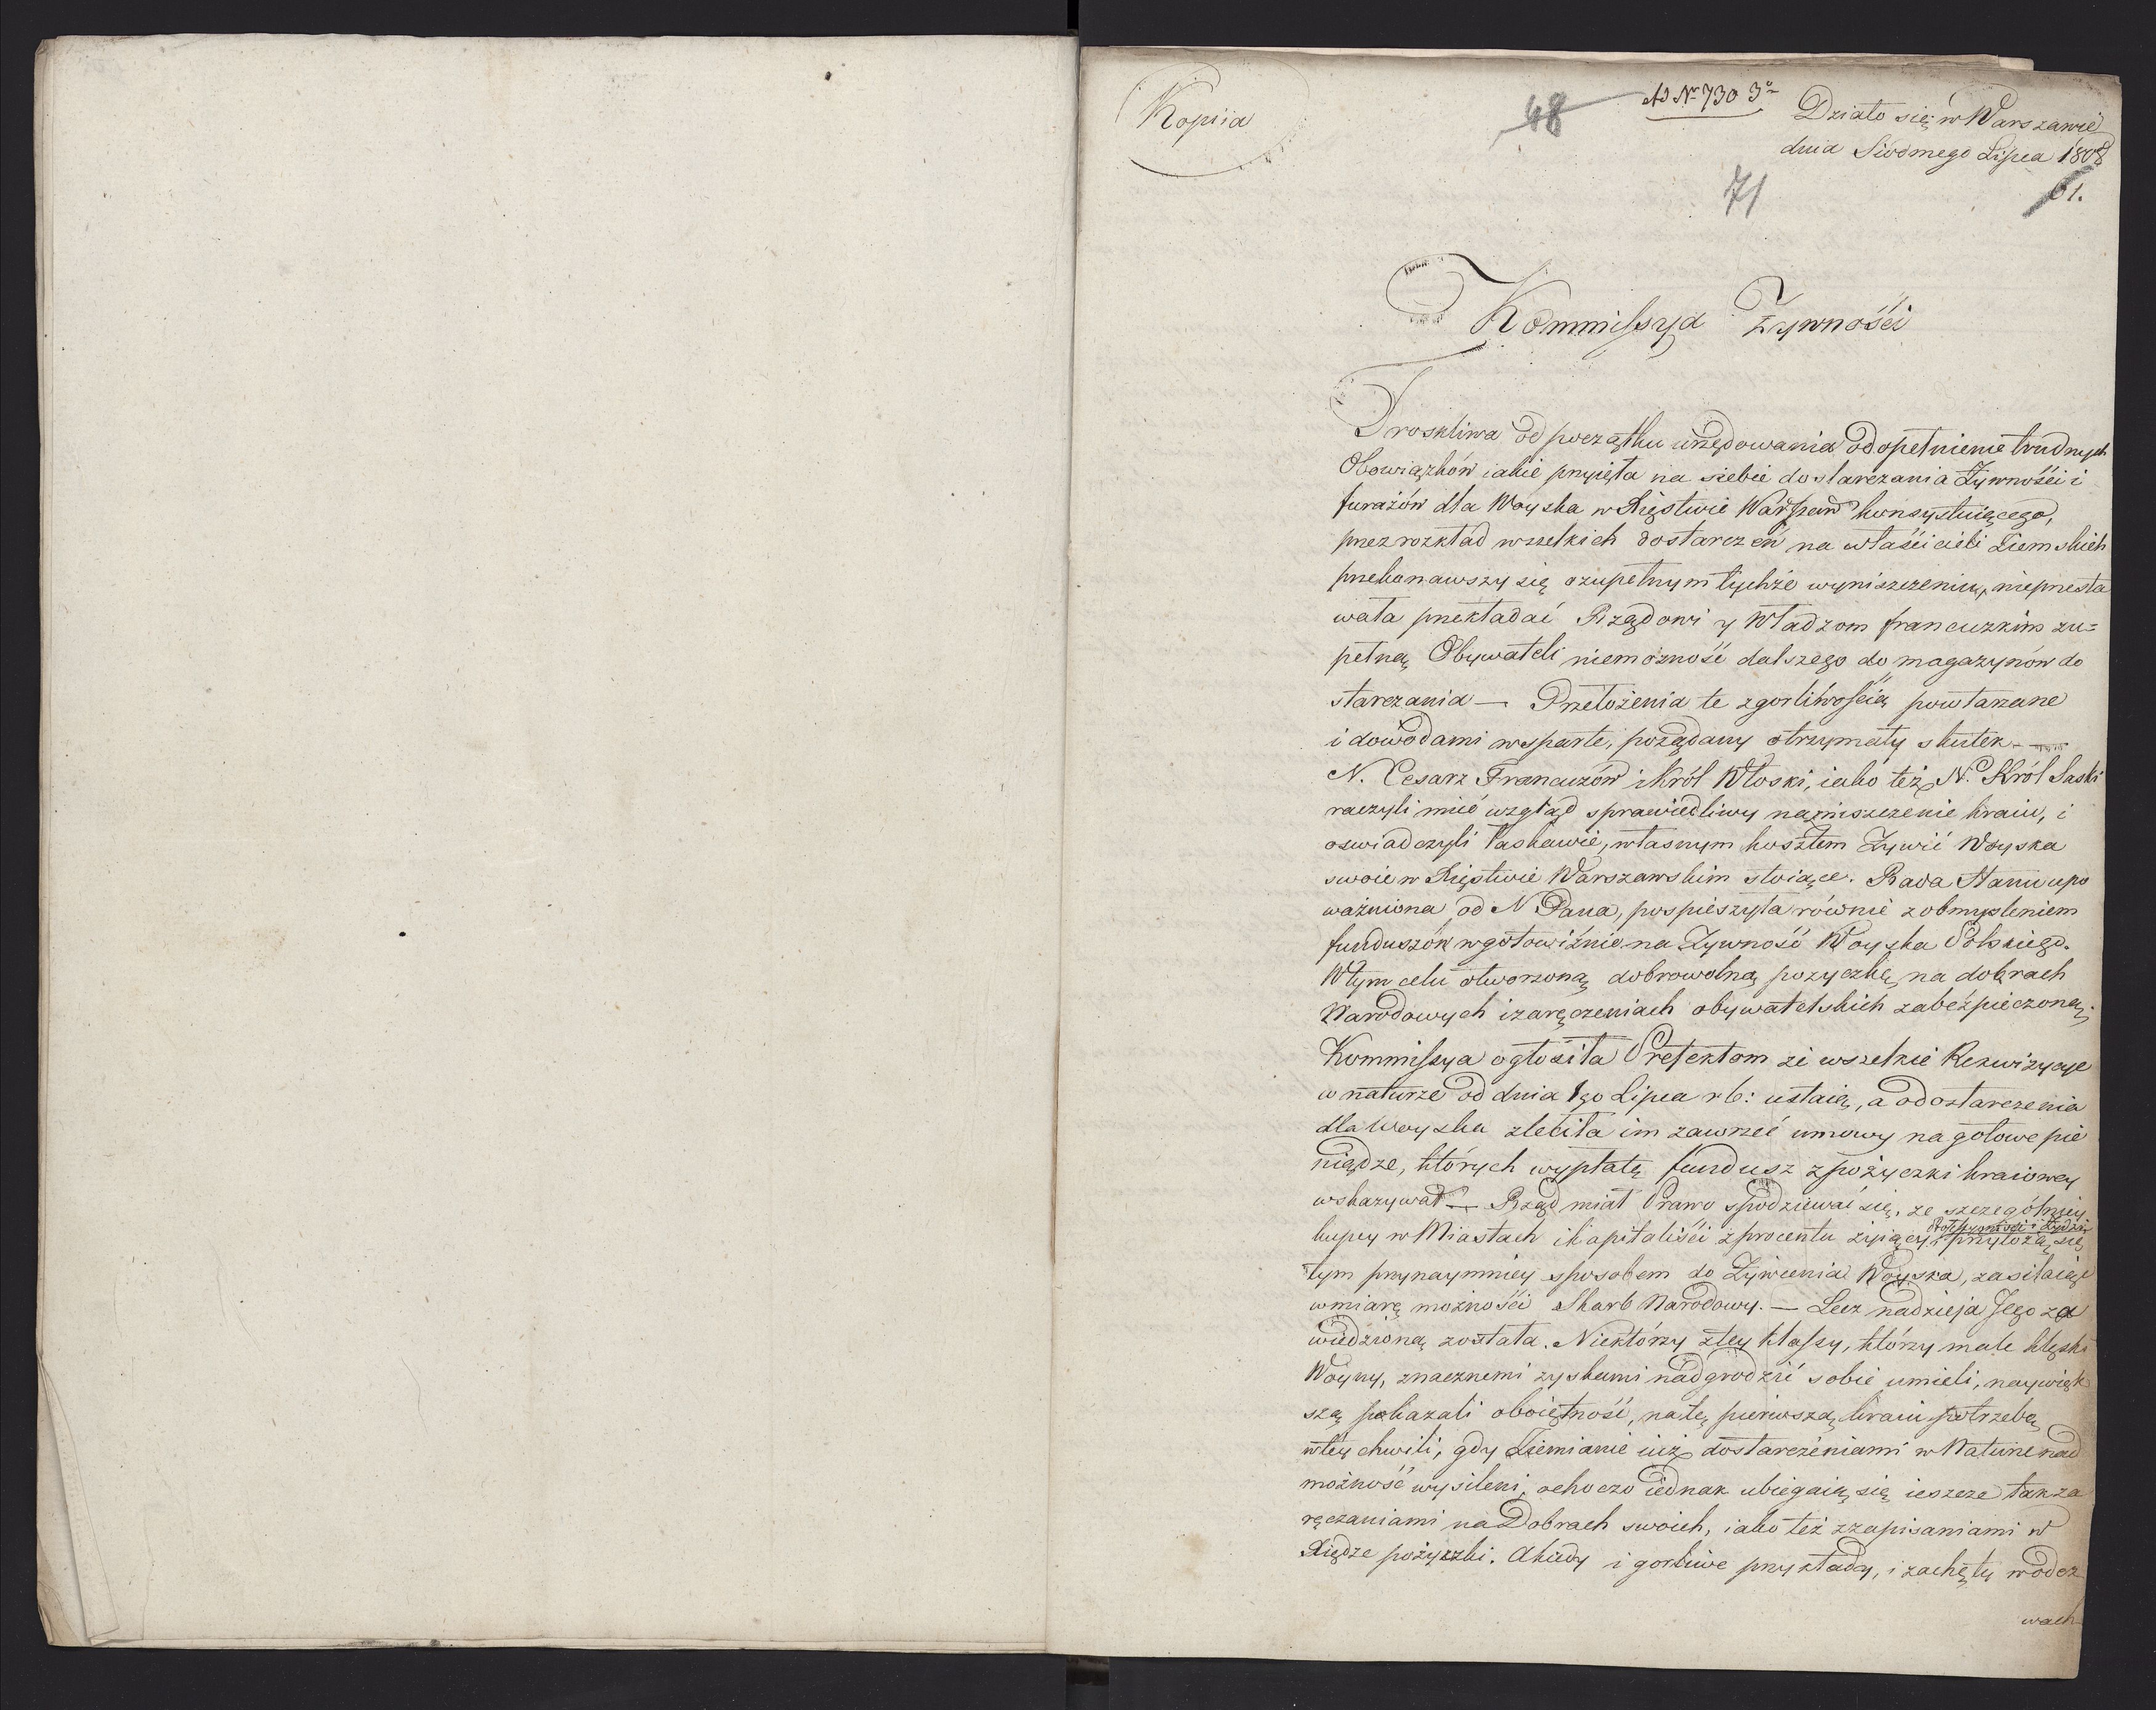 Kopiia
48
Ad Nr 730 3o
Działo się w Warszawie
dnia Siódmego Lipca 1808
61.
71
Kommissya Żywności
Troskliwa od początku urzędowania o dopełnienie trudnych
Obowiązków iakie przyięła na siebie dostarczania Żywności i
furażów dla Woyska w Xięstwie Warszaw konsystuiącego,
przez rozkład wszelkich dostarczeń na właścicieli Ziemskich
przekonawszy się o zupełnym tychże wyniszczeniu, nieprzesta
wała przekładać Rządowi y Władzom francuzkim zu=
pełną Obywateli niemożność dalszego do magazynów do
starczania — Przełożenia te z gorliwością powtarzane
i dowodami wsparte, pożądany otrzymały skutek —
N. Cesarz Francuzów i Król Włoski, iako też N. Król Saski
raczyli mieć wzgląd sprawiedliwy na zniszczenie kraiu, i
oświadczyli łaskawie, własnym kosztem Żywić Woyska
swoie w Xięstwie Warszawskim stoiące. Rada Stanu upo
ważniona od N Pana, pospieszyła równie z obmyśleniem
funduszów w gotowiźnie na Żywność Woyska Polskiego.
W tym celu otworzoną dobrowolną pożyczkę, na dobrach
Narodowych i zaręczeniach obywatelskich zabezpieczoną,
Kommissya ogłosiła Prefektom że wszelkie Rekwizycye
w naturze od dnia 1go Lipca r b: ustaią, a o dostarczenia
dla Woyska zleciła im zawrzeć umowy na gotowe pie
niądze, których wypłatę fundusz z pożyczki kraiowey
wskazywał — Rząd miał Prawo spodziewać się, że szczególniey
kupcy w Miastach i kapitaliści z procentu żyiący, Professyoniści i Żydzi przyłożą się
tym przynaymniey sposobem do Żywienia Woyska, zasilaiąc
w miarę możności Skarb Narodowy. — Lecz nadzieja Jego za
wiedzioną została. Niektórzy z tey klassy, którzy małe klęski
Woyny, znacznemi zyskami nadgrodzić sobie umieli, naywięk
szą pokazali oboiętność, na tę pierwszą kraiu potrzebę
w tey chwili, gdy Ziemianie iuż dostarczeniami w Naturze nad
możność wysileni, ochoczo iednak ubiegaią się ieszcze tak za
ręczaniami na Dobrach swoich, iako też z zapisaniami w
Xiędze pożyczki. A kiedy i gorliwe przykłady, i zachęty w odez
wach